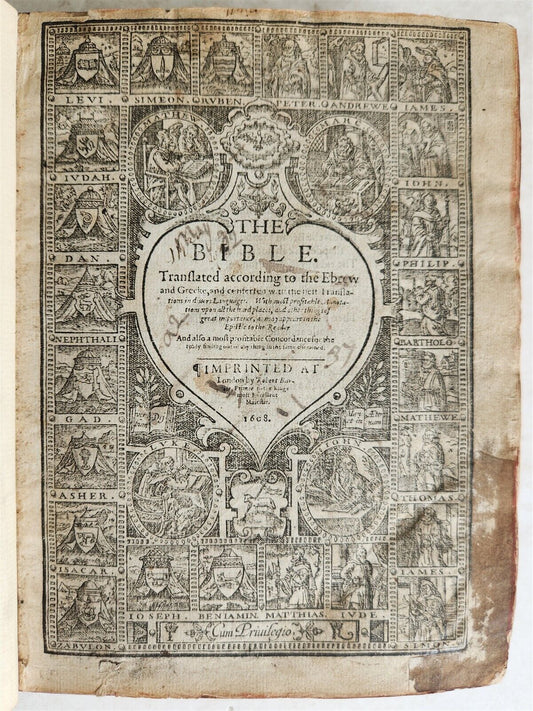 LEVI. SIMEON. RVBEN. PETER. ANDREWE IAMES.
IVDAH.
DAN.
NEPHTHALI
GAD.
ASHER.
ISACAR
ZABVLON.
IOHN.
PHILIP.
BARTHOLO.
MATHEWE.
THOMAS.
IAMES.
SIMON.
THE
BIBLE.
Translated according to the Ebrew
and Greeke, and conferred with the best Transla-
tions in divers Languages. With most profitable Annota-
tions upon all the hard places, and other things of
great importance, as may appeare in the
Epistle to the Reader
And also a most profitable Concordance for the
¶IMPRINTED AT
London by Robert Bar-
ker, Printer to the Kings
most Excellent
Majestie.
1608.
Verbum Dei
Manet in Æternum
LVKE
IOHN
IOSEPH. BENIAMIN. MATTHIAS. IVDE.
Cum Privilegio.